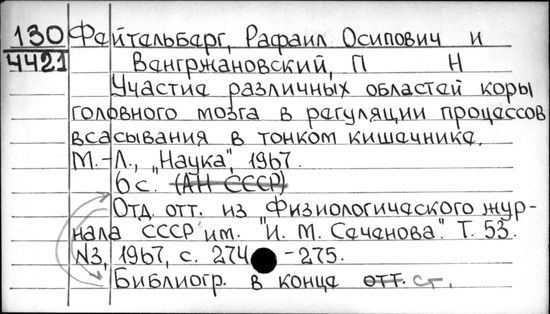 130 Файтельберг, Рафаил Осипович и
4421 Венгржановский, П Н
Участие различных областей коры
головного мозга в регуляции процессов
всасывания в тонком кишечнике.
М.-Л., "Наука", 1967.
6 с. (АН СССР)
Отд. отт. из Физиологического жур-
нала СССР им. "И. М. Сеченова". Т. 53.
N3, 1967, с. 274 -275.
Библиогр. в конце отт. ст.